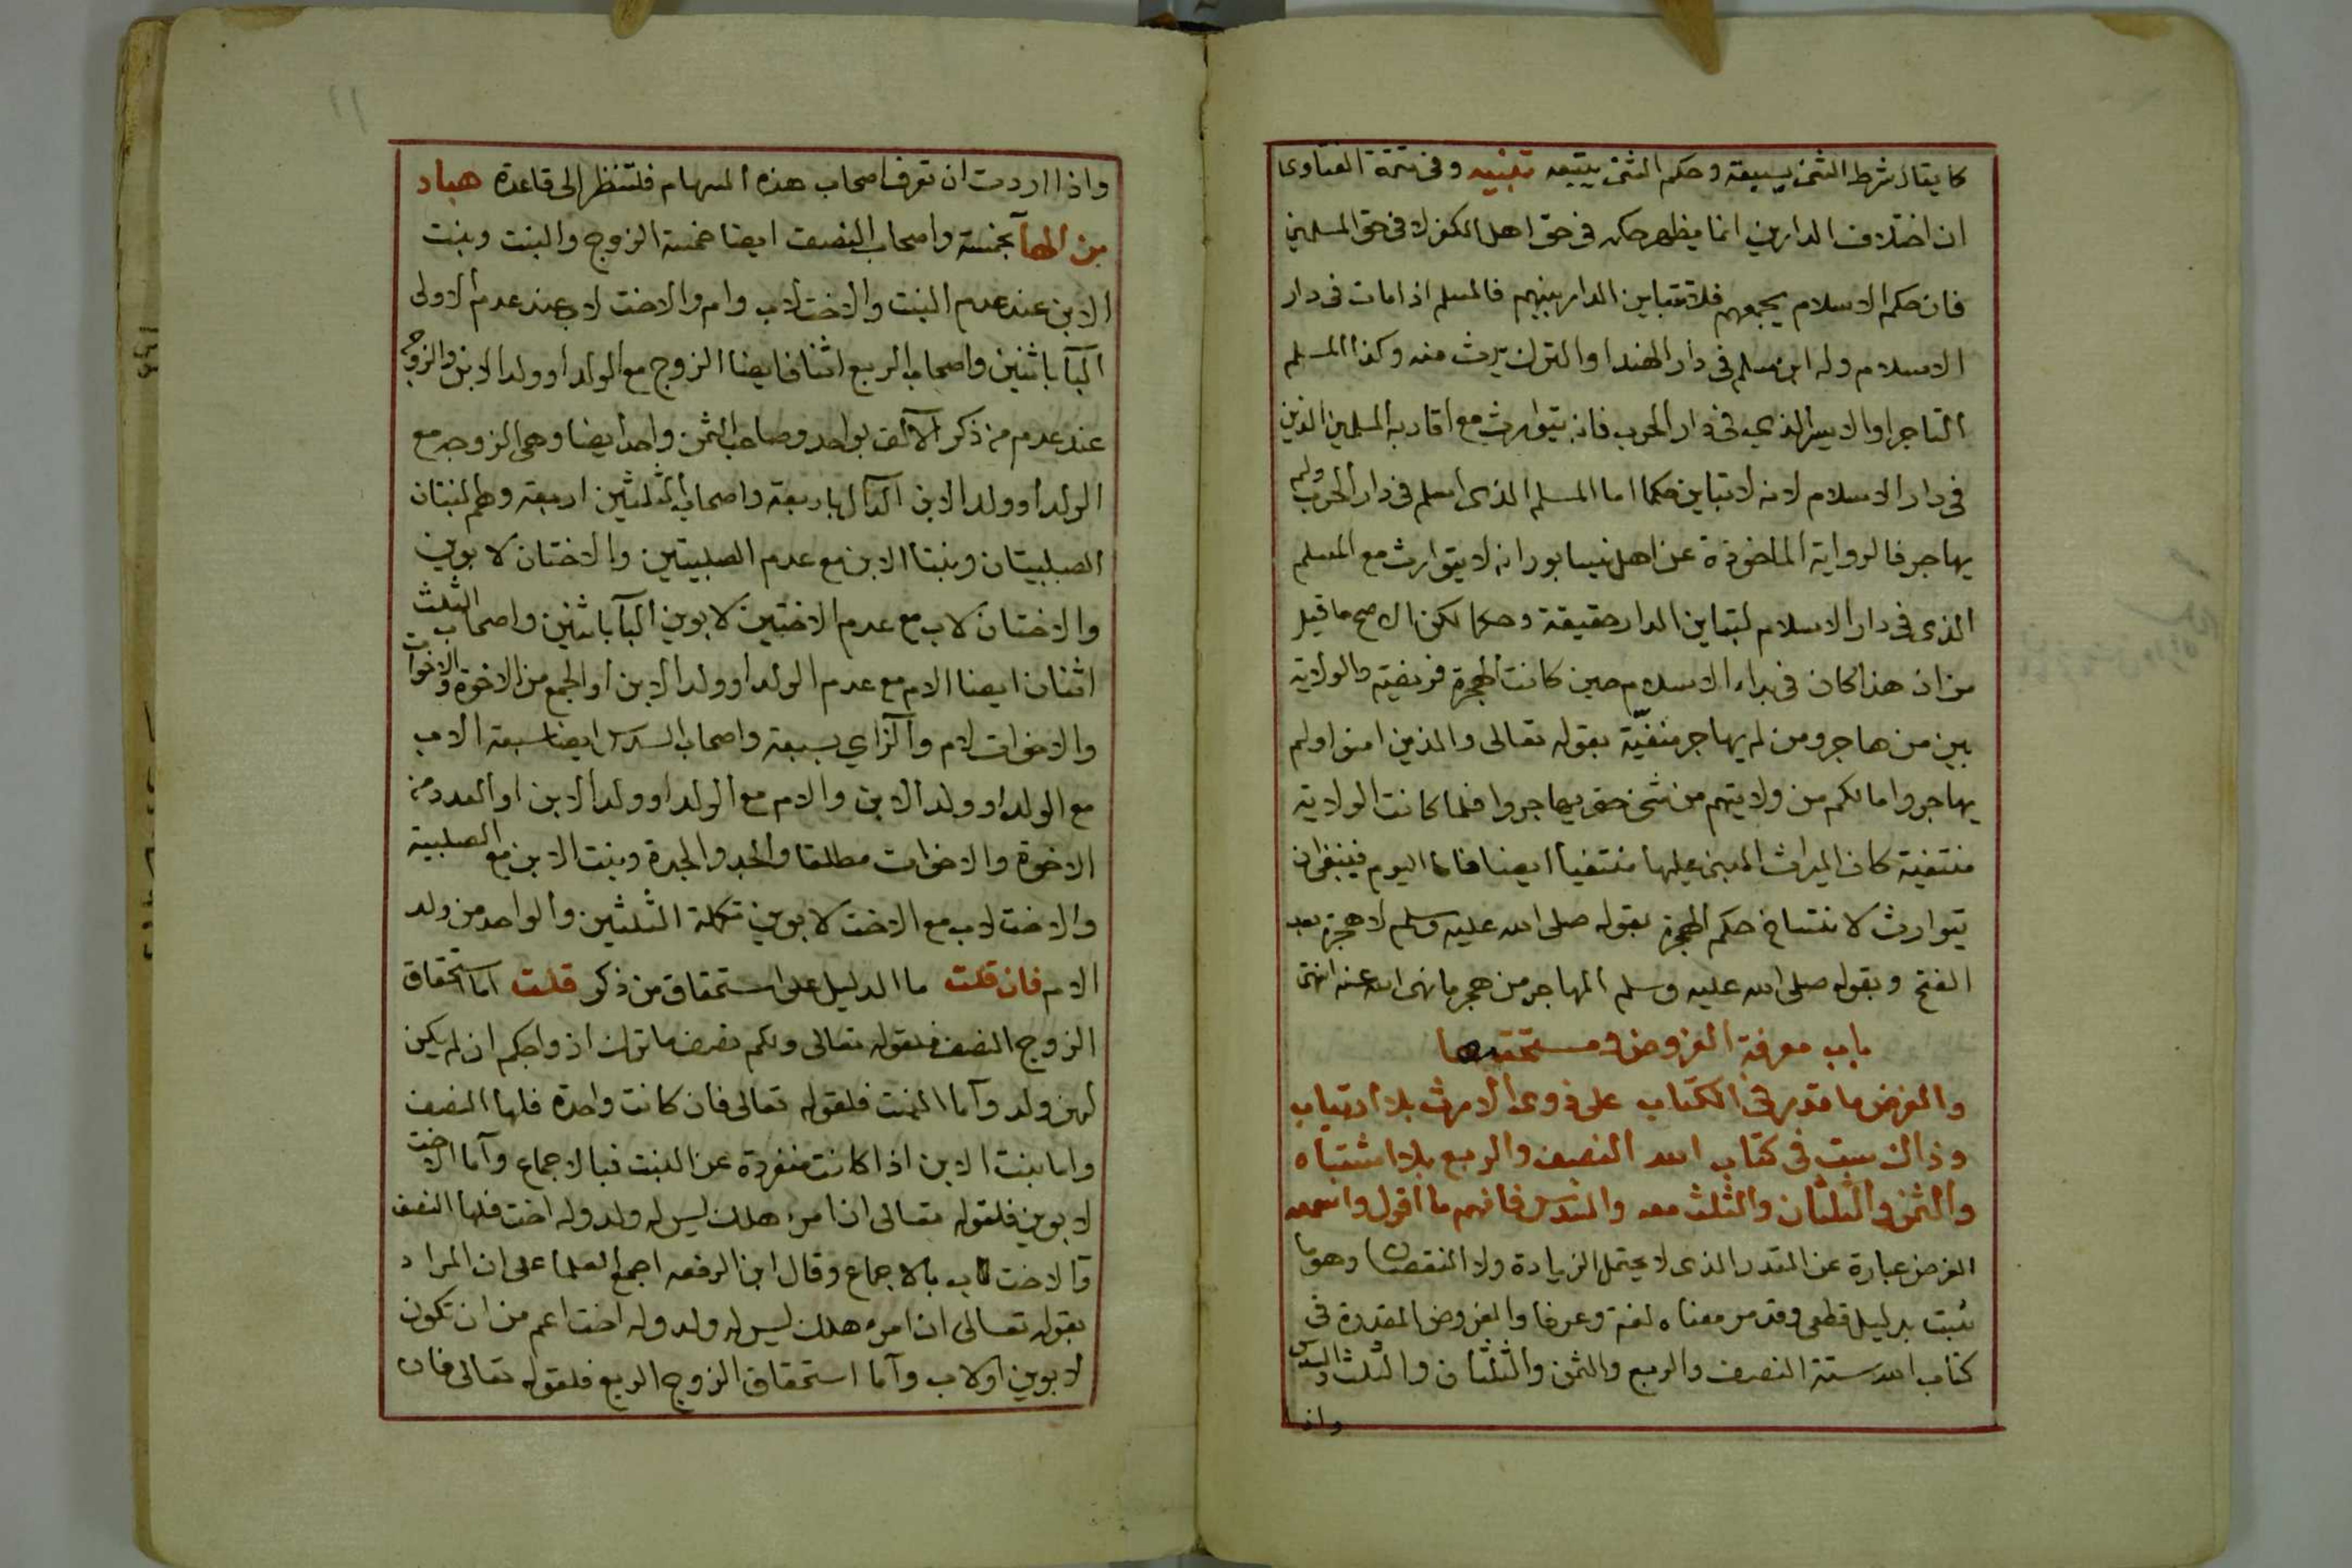 كما يقال شرط الشئ يسبقه وحكم الشئ يتبعه تنبيه وفى تتمة الفتاوى
ان اختلاف الدارين انما يظهر حكمه فى حق اهل الكفر لا فى حق المسلمين
فان حكم الاسلام يجمعهم فلا تتباين الدار بينهم فالمسلم اذا مات فى دار
الاسلام وله ابن مسلم فى دار الهند او الترك يرث منه وكذا المسلم
التاجر او الاسير الذي فى دار الحرب فانه يتوارث مع اقاربه المسلمين الذين
فى دار الاسلام لانه لا تباين حكما اما المسلم الذى اسلم فى دار الحرب ولم
يهاجر فالرواية الماخوذة عن اهل نيسابور انه لا يتوارث مع المسلم
الذى فى دار الاسلام لتباين الدار حقيقة وحكما لكن الاصح ما قيل
من ان هذا كان فى بداء الاسلام حين كانت الهجرة فريضة والولاية
بين من هاجر ومن لم يهاجر منفيّة بقوله تعالى والذين امنوا ولم
يهاجروا مالكم من ولايتهم من شئ حتى يهاجروا فلما كانت الولاية
منتفية كان الميراث المبنى عليها منتفيا ايضا فاما اليوم فينبغى ان
يتوارث لانتساخ حكم الهجرة بقوله صلى الله عليه وسلم لا هجرة بعد
الفتح وبقوله صلى الله عليه وسلم المهاجر من هجر ما نهى الله عنه انتهى
باب معرفة الفروض ومستحقيها
والفرض ما قدر فى الكتاب على ذوى الارث بلا ارتياب
وذاك ست فى كتاب الله النصف والربع بلا اشتباه
والثمن والثلثان والثلث معه والسدس فافهم ما اقول واسمعه
الفرض عبارة عن القدر الذى لا يحتمل الزيادة ولا النقصان وهو ما
ثبت بدليل قطعى وقد مر معناه لغة وعرفا والفروض المقدرة فى
كتاب الله ستة النصف والربع والثمن والثلثان والثلث والسدس
واذا
١١
واذا اردت ان تعرف اصحاب هذه السهام فلتنظر الى قاعدة هباد
بز الهآ بخمسة واصحاب النصف ايضا خمسة الزوج والبنت وبنت
الابن عند عدم البنت والاخت لاب وام والاخت لاب عند عدم الاولى
البآ باثنين واصحاب الربع اثنان ايضا الزوج مع الولد او ولد الابن والزوجه
عند عدم من ذكر الالف بواحد وصاحب الثمن واحد ايضا وهى الزوجه مع
الولد او ولد الابن الدال باربعة واصحاب الثلثين اربعة وهم البنتان
الصلبيتان وبنتا الابن مع عدم الصلبيتين والاختان لابوين
والاختان لاب مع عدم الاختين لابوين البآ باثنين واصحاب الثلث
اثنان ايضا الام مع عدم الولد او ولد الابن او الجمع من الاخوة والاخوات
والاخوات لام والزاي بسبعة واصحاب السدس ايضا سبعة الاب
مع الولد او ولد الابن والام مع الولد او ولد الابن او العدد من
الاخوة والاخوات مطلقا والجد والجدة وبنت الابن مع الصلبية
والاخت لاب مع الاخت لابوين تكملة الثلثين والواحد من ولد
الام فان قلت ما الدليل على استحقاق من ذكر قلت اما استحقاق
الزوج النصف فلقوله تعالى ولكم نصف ما ترك ازواجكم ان لم يكن
لهن ولد وآما البنت فلقوله تعالى فان كانت واحدة فلها النصف
واما بنت الابن اذا كانت منفردة عن البنت فبالاجماع وآما الاخت
لابوين فلقوله تعالى ان امرء هلك ليس له ولد وله اخت فلها النصف
والاخت لاب بالاجماع وقال ابن الرفعه اجمع العلما على ان المراد
بقوله تعالى ان امرء هلك ليس له ولد وله اخت اعم من ان تكون
لابوين او لاب وآما استحقاق الزوج الربع فلقوله تعالى فان